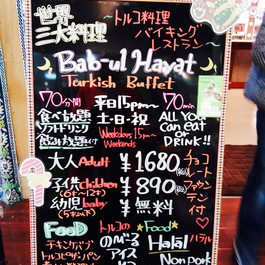 世界
三大料理
~トルコ料理
バイキング
レストラン~
Bab-ul Hayat
Turkish Buffet
70分間
食べ放題
ソフトドリンク
飲み放題付
平日15pm~
土・日・祝
Weekdays 15pm~
Weekends
70min
ALL YOU
can eat
or
DRINK!!
大人 Adult ¥1680(税込)
子供 Children ¥890(税込)
(6才~12才)
幼児 baby ¥無料
(5才以下)
チョコレートファウンテン付
Food
チキンケバブ
トルコピザ
トルコの
のび~る
アイス
☆Food☆
Halal
ハラル
Non pork